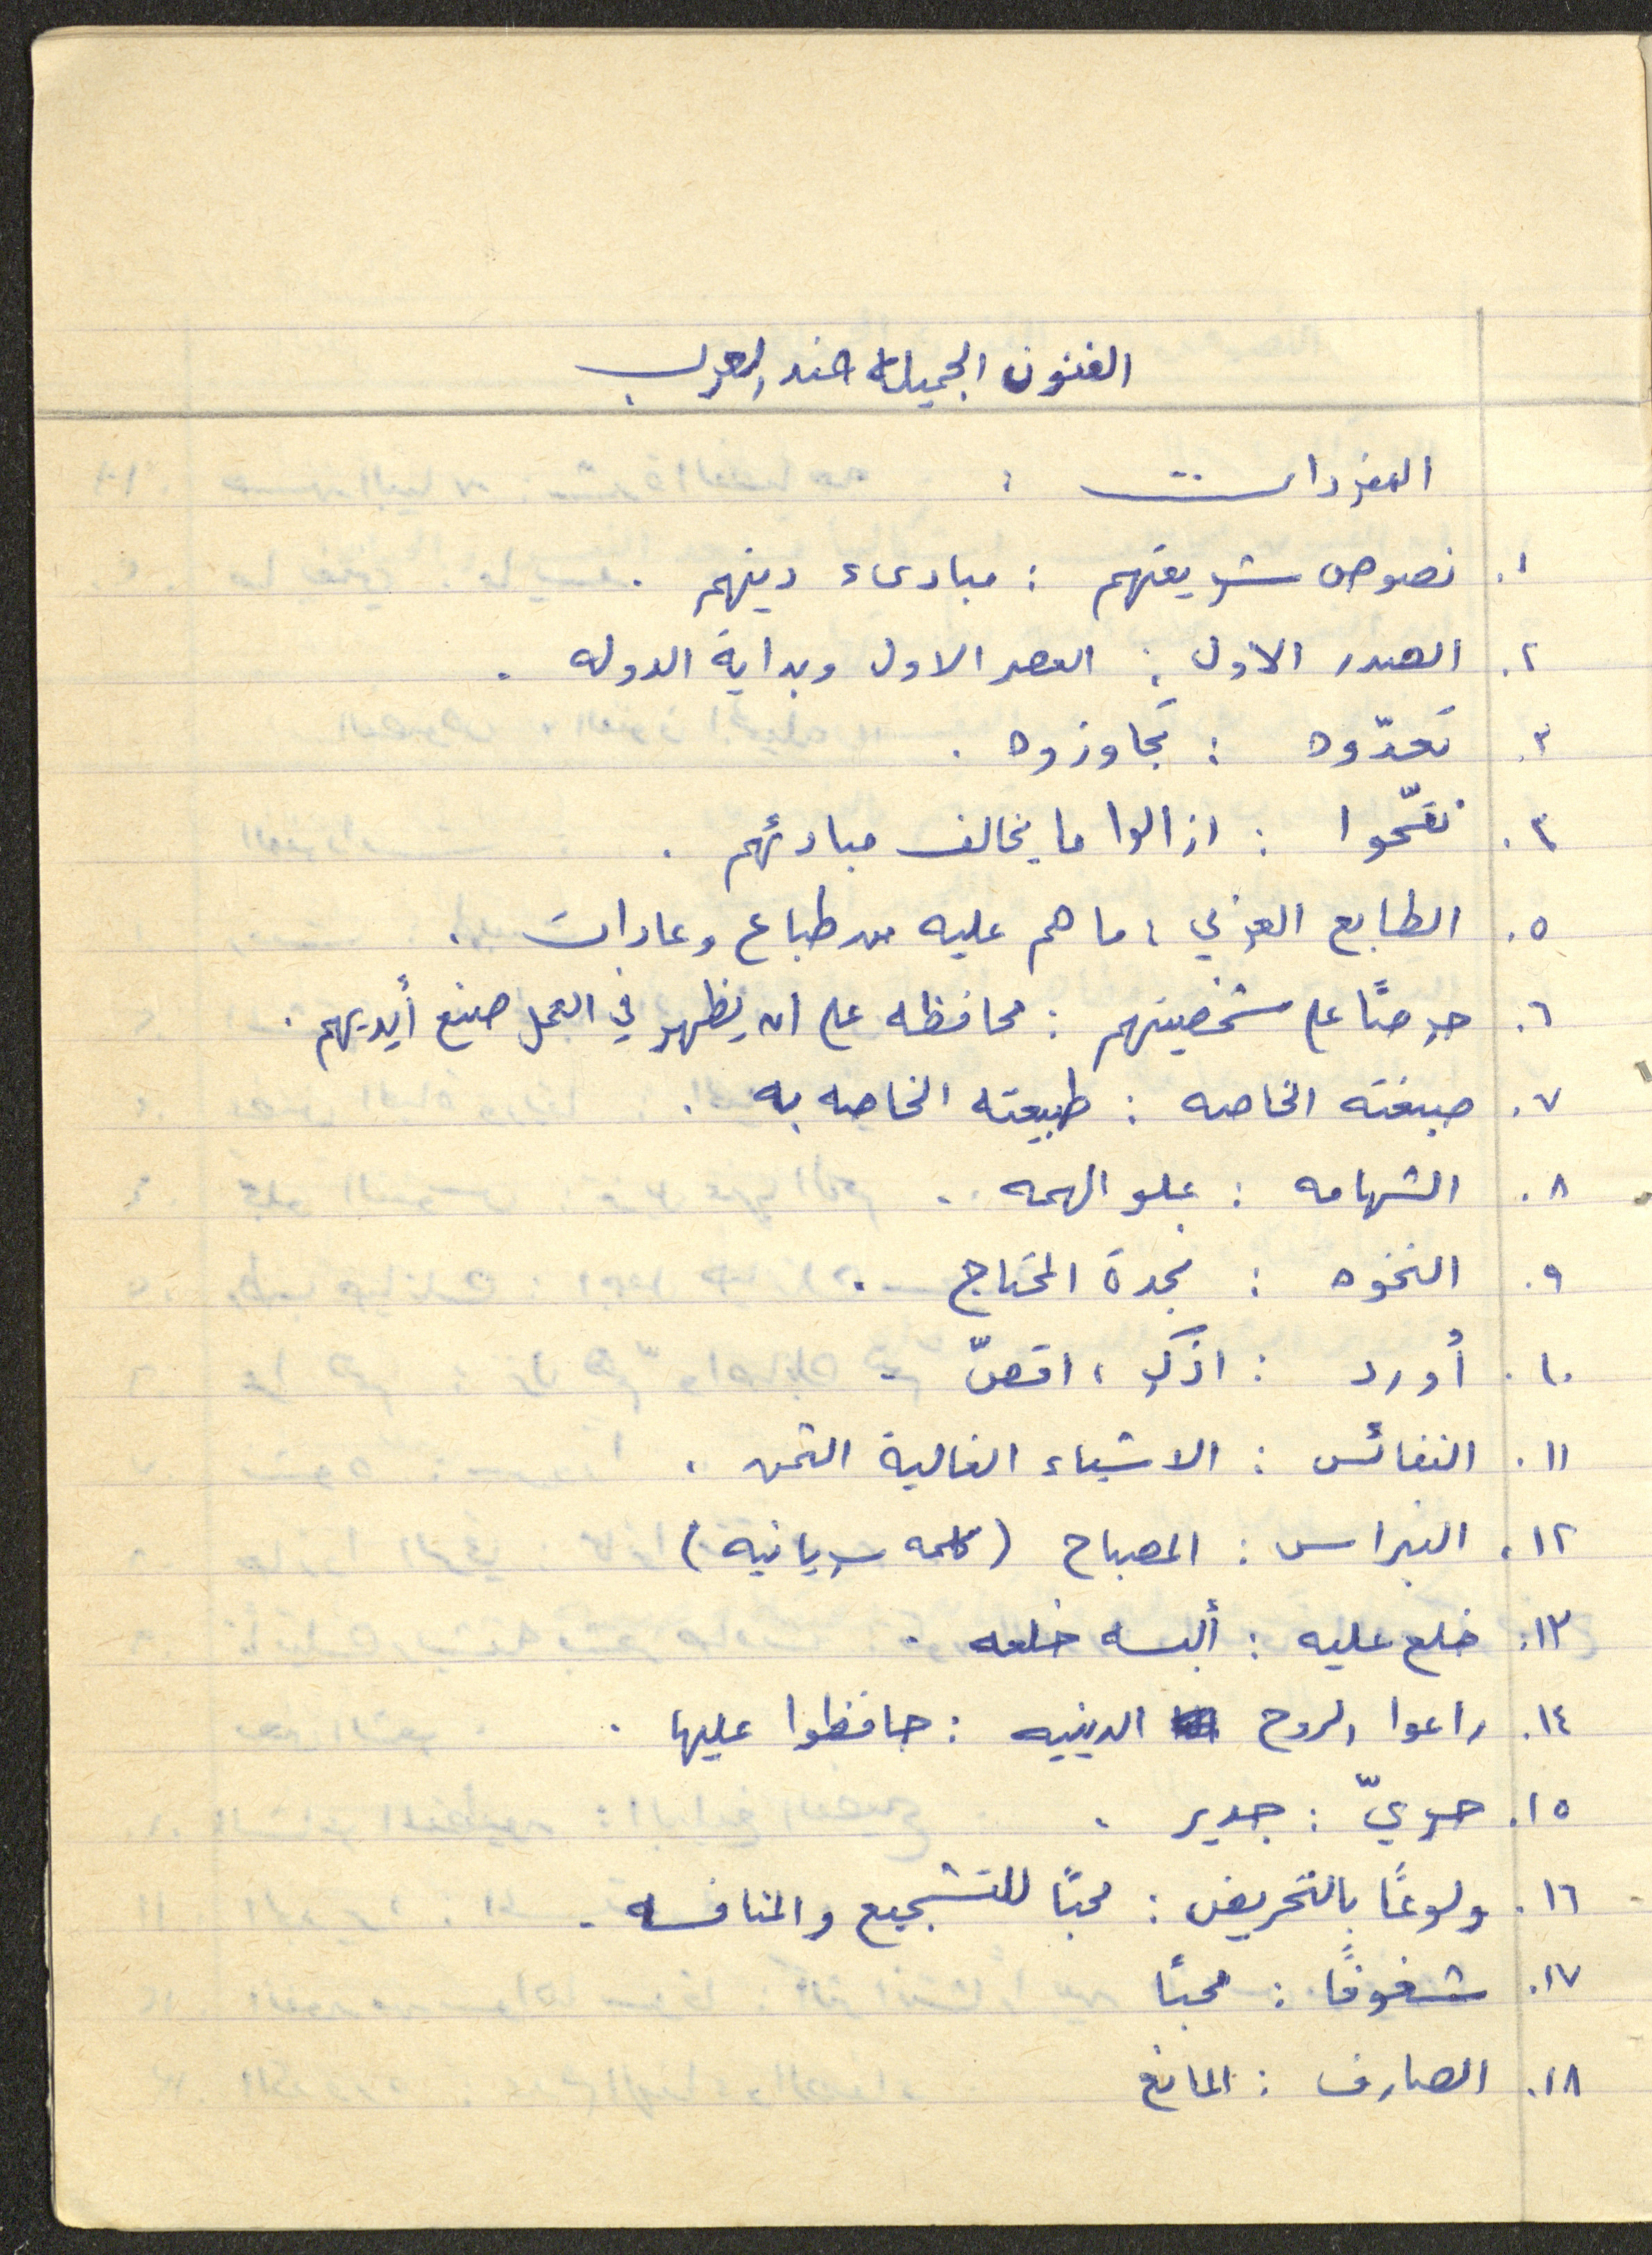 الفنون الجميله عند العرب
المفردات :
١. نصوص شريعتهم : مبادىء دينهم .
٢. الصدر الاول : العصر الاول وبداية الدوله .
٣. تَعدّوه : تَجاوزوه .
٤. نقّحوا : ازالوا ما يخالف مبادئهم .
٥. الطابع العربي : ما هم عليه من طباع وعادات .
٦. حرصًا على شخصيتهم : محافظه على ان يظهر في العمل صنع أيديهم .
٧. صبغته الخاصه : طبيعته الخاصه به .
٨. الشهامه : علو الهمه .
٩. النخوه : نجدة المحتاج .
١٠. أورد : اذكر ، اقصّ
١١. النفائس : الاشياء الغالية الثمن .
١٢. النبراس : المصباح (كلمه سريانيه)
١٣. خلع عليه : ألبسه خلعه .
١٤. راعوا الروح الدينيه : حافظوا عليها .
١٥. حريّ : جدير .
١٦. ولوعًا بالتحريض : محبًا للتشجيع والمنافسه .
١٧. شغوفًا : محبًا
١٨. الصارف : المانع